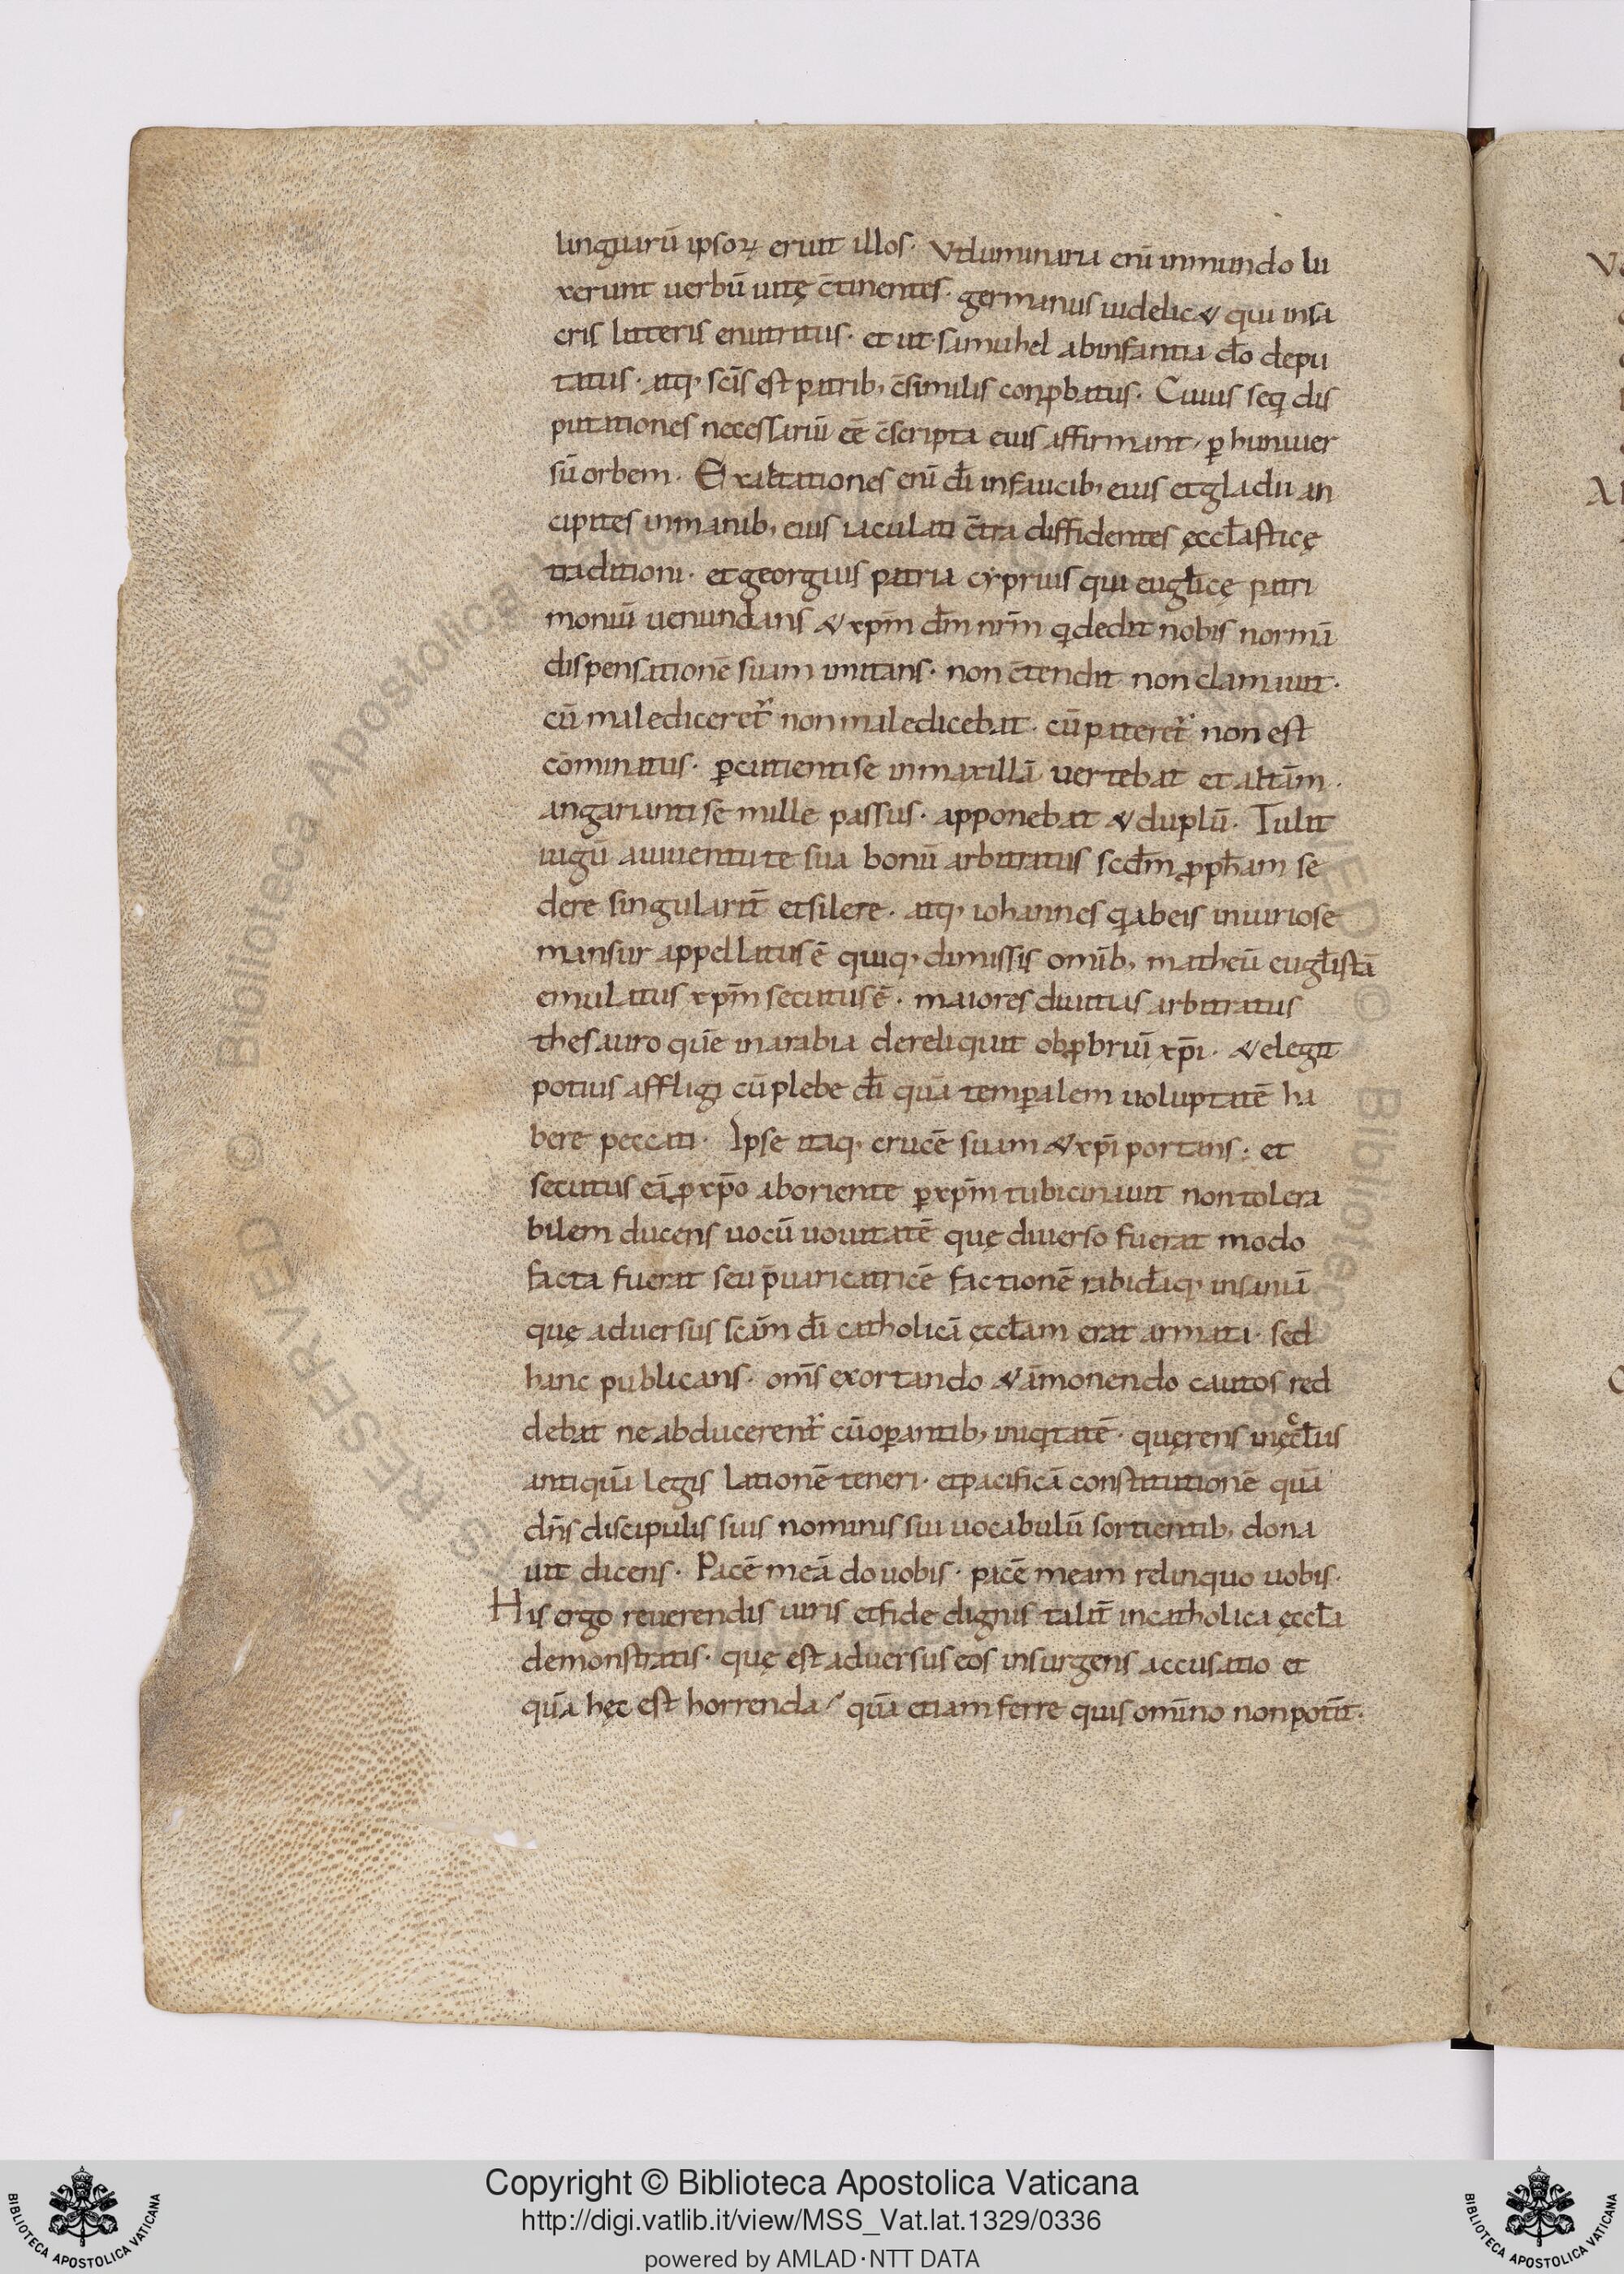 linguarū ipsoꝝ eruit illos. Vt luminaria eni͞ inmundo lu
xerunt uerbū uitę c̄tinentes. germanus uidelic& qui insa
cris litteris enutritus. et ut samuhel abinfantia d̄o depu
tatus. atq; sc̄is est patrib; c̄similis conꝓbatus. Cuius seq̄ dis
putationes necessariū ēē c̄scripta eius affirmant. ꝑ hunuuer
sū orbem. Exaltationes eni͞ d̄i infaucib; eius et gladii an
cipites inmanib; eius iaculati c̄tra diffidentes ęccl̄asticę
traditioni. et georgius patria cyprius qui eugl̄icę patri
moniū uenundans & xp̄m dn̄m nr̄m q̄ dedit nobis normā
dispensationē suam imitans. non c̄tendit non clamauit.
cū malediceret̄ non maledicebat. cū pateret̄ non est
cōminatus. ꝑcutienti se inmaxillā uertebat et altām.
angarianti se mille passus. apponebat & duplū. Tulit
iugū aiuuentute sua bonū arbitratus scd̄m ꝓph̄am se
dere singularit̄ et silere. atq; iohannes q̄ abeis iniuriose
mansur appellatus ē quiq; dimissis omīb; matheū eugl̄istā
emulatus xp̄m secutus ē. maiores diuitias arbitratus
thesauro quē inarabia dereliquit obꝓbriū xp̄i. & elegit
potius affligi cū plebe d̄i quā temꝑalem uoluptatē ha
bere peccati. Ipse itaq; crucē suam & xp̄i portans. et
secutus eā ꝓ xp̄o aboriente ꝑ xp̄m tubicinauit non tolera
bilem ducens uocū uouitatē quę diuerso fuerat modo
facta fuerat seu p̄uaricatricē factionē rabidāq; insaniā
quę aduersus scām d̄i catholicā ęccl̄am erat armati. sed
hanc publicans. om̄s exortando & āmonendo cautos red
debat ne abducerent̄ cū oꝑantib; iniq̄tatē. quęrens inęccl̄iis
antiquā legis lationē teneri. et pacificā constitutionē quā
dn̄s discipulis suis nominis sui uocabulū sortientib; dona
uit dicens. Pacē meā do uobis. pacē meam relinquo uobis.
His ergo reuerendis uiris et fide dignis talit̄ incatholica ęccl̄a
demonstratis. quę est aduersus eos insurgens accusatio et
quā hęc est horrenda / quā etiam ferre quis omīno non pot̄it.
Copyright © Biblioteca Apostolica Vaticana
http://digi.vatlib.it/view/MSS_Vat.lat.1329/0336
powered by AMLAD·NTT DATA
BIBLIOTECA APOSTOLICA VATICANA
BIBLIOTECA APOSTOLICA VATICANA